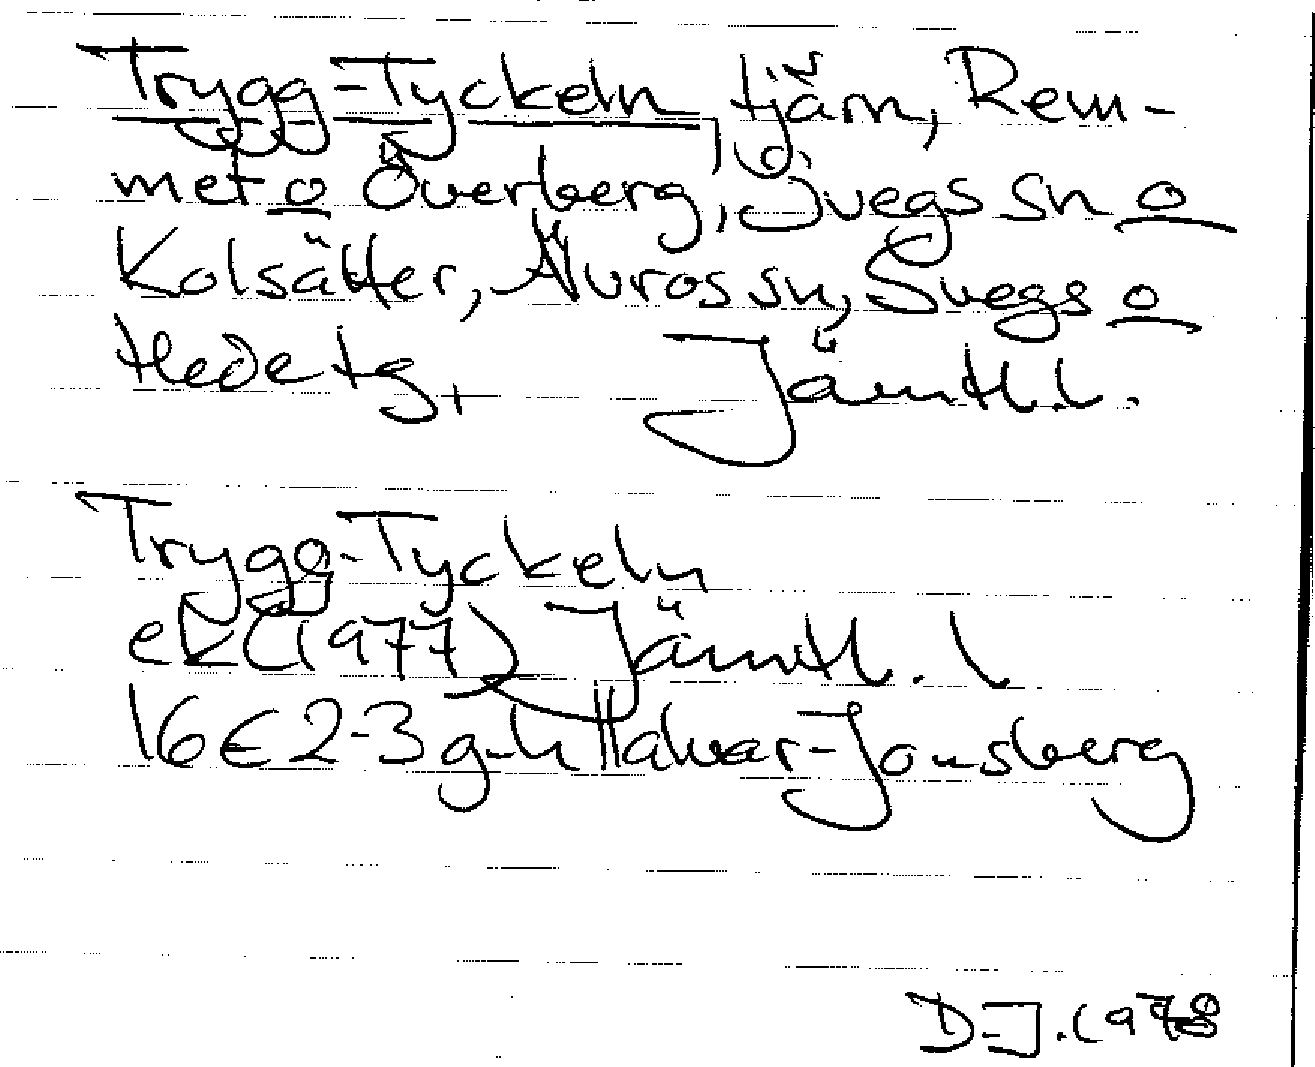 Trygg-Tyckeln, tjärn, Rem-
met o Överberg, Svegs sn o
Kolsätter, Älvros sn, Svegs o
Hede tg,   Jämtl.l.
Trygg-Tyckeln
ek (1977) Jämtl. l
16E2-3g-h Halvar-Jonsberg
D-J. 1978